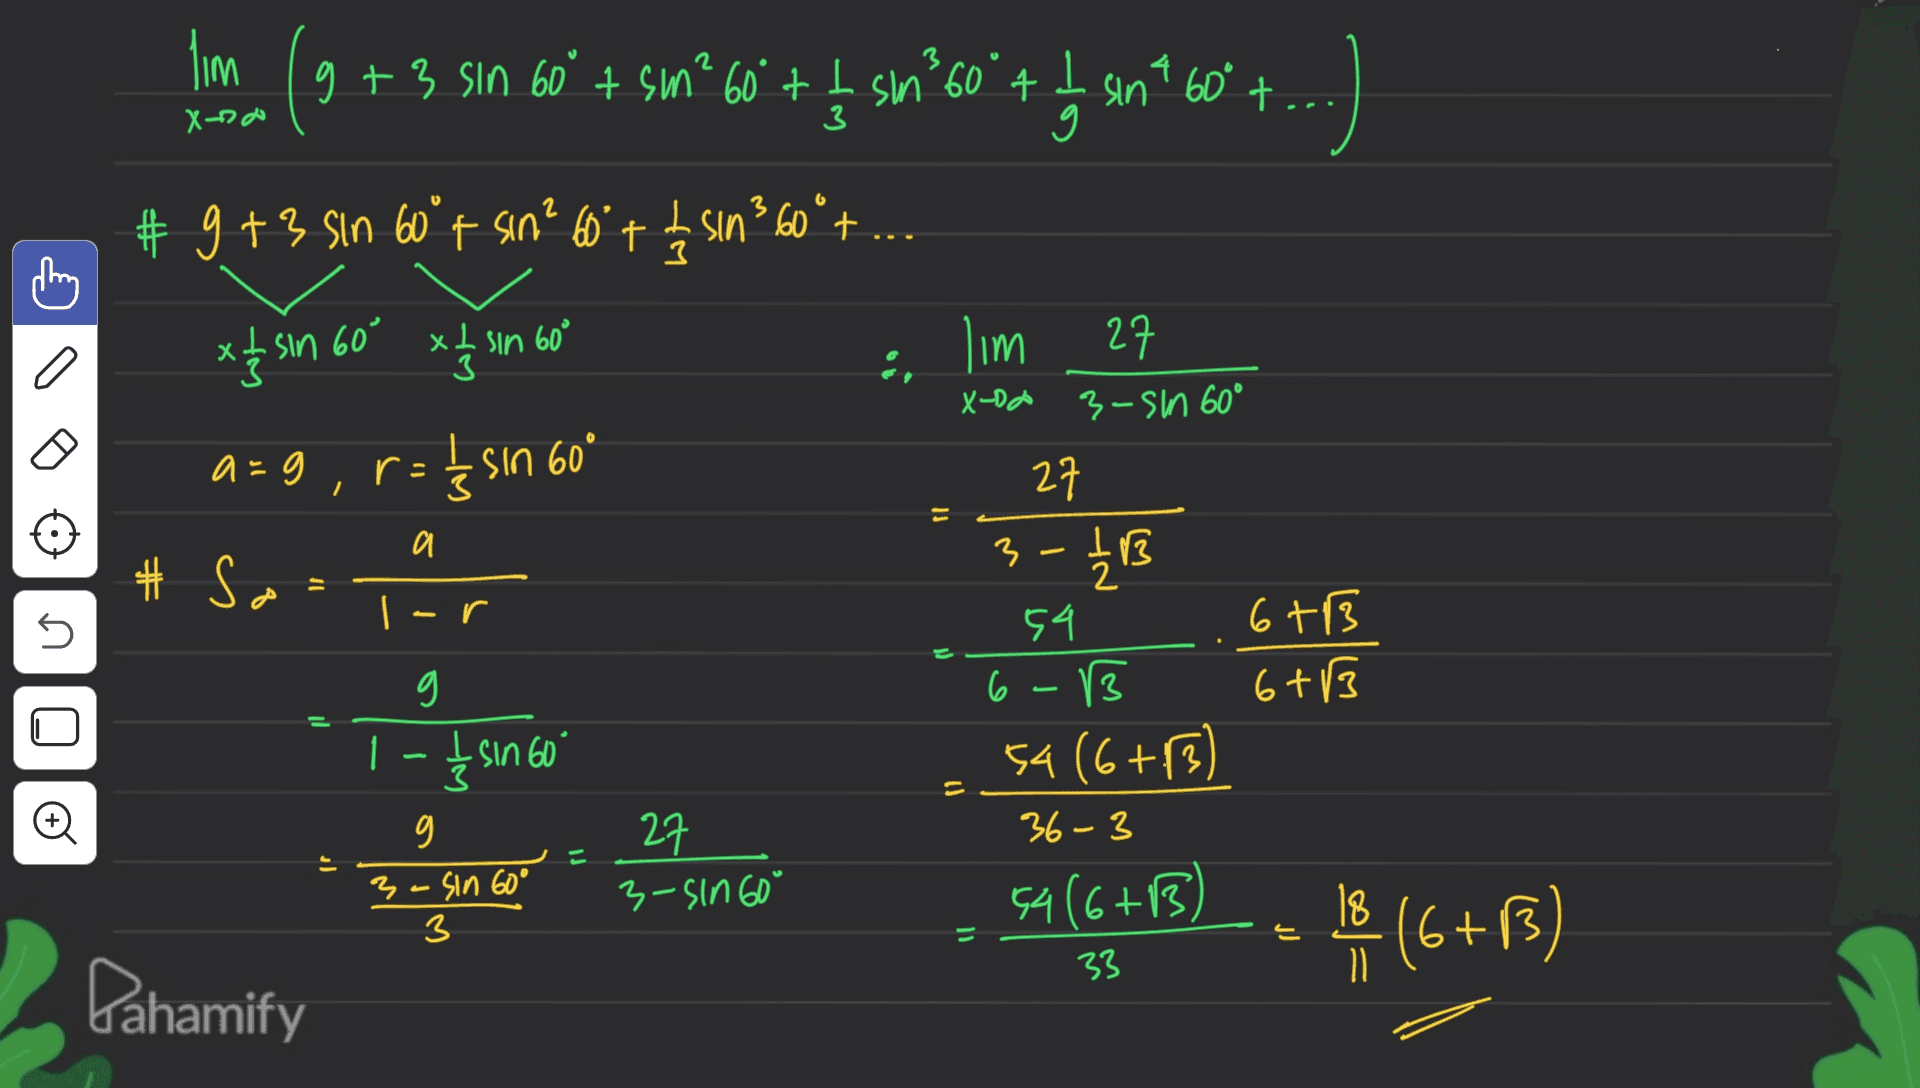 lim x→∞ (9 + 3 sin 60° + sin² 60° + 1/3 sin³ 60° + 1/9 sin⁴ 60° + ...)
# 9 + 3 sin 60° + sin² 60° + 1/3 sin³ 60° + ...
x 1/3 sin 60° x 1/3 sin 60°
a = 9 , r = 1/3 sin 60°
# S∞ = a / (1 - r)
= 9 / (1 - 1/3 sin 60°)
= 9 / ((3 - sin 60°) / 3) = 27 / (3 - sin 60°)
∴ lim x→∞ 27 / (3 - sin 60°)
= 27 / (3 - 1/2 √3)
= 54 / (6 - √3) · (6 + √3) / (6 + √3)
= 54 (6 + √3) / (36 - 3)
= 54 (6 + √3) / 33 = 18/11 (6 + √3)
Pahamify